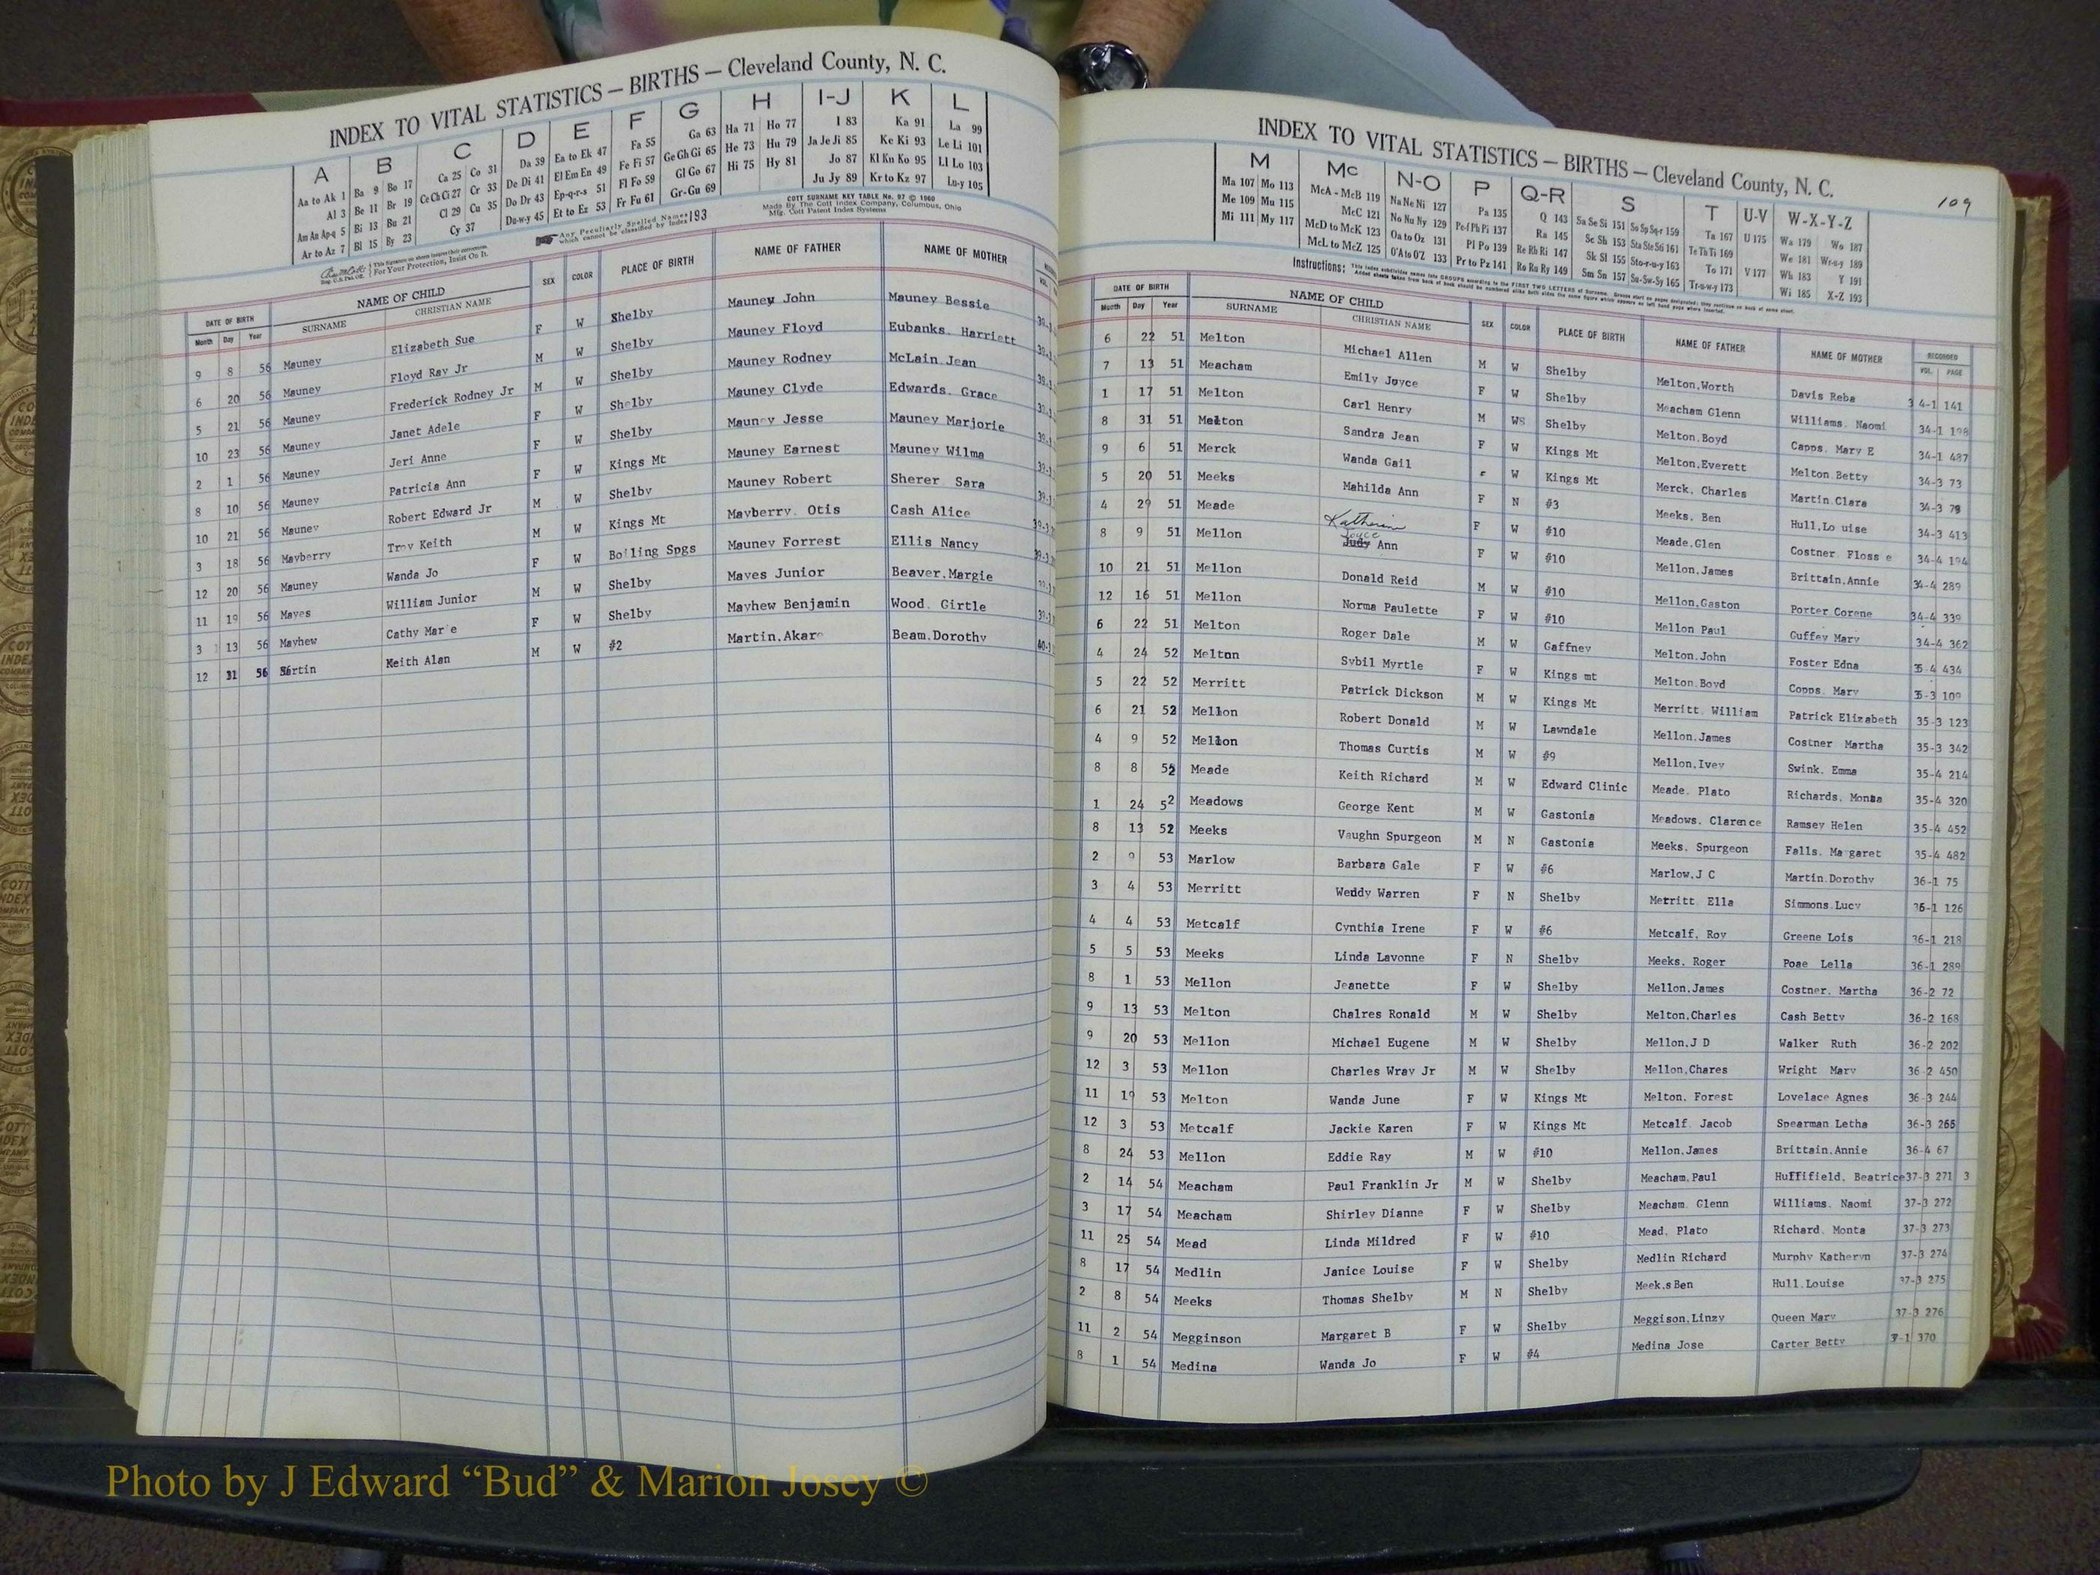 INDEX TO VITAL STATISTICS — BIRTHS — Cleveland County, N. C.
A B C D E F G H I-J K L
Aa to Ak 1 Ba 9 Bo 17 Ca 25 Co 31 Da 39 Ea to Ek 47 Fa 55 Ga 63 Ha 71 Ho 77 I 83 Ka 91 La 99
Al 3 Be 11 Br 19 Ce Ch Ci 27 Cr 33 De Di 41 El Em En 49 Fe Fi 57 Ge Gh Gi 65 He 73 Hu 79 Ja Je Ji 85 Ke Ki 93 Le Li 101
Am An Ap-q 5 Bi 13 Bu 21 Cl 29 Cu 35 Do Dr 43 Ep-q-r-s 51 Fl Fo 59 Gl Go 67 Hi 75 Hy 81 Jo 87 Kl Kn Ko 95 Ll Lo 103
Ar to Az 7 Bl 15 By 23 Cy 37 Du-w-y 45 Et to Ez 53 Fr Fu 61 Gr-Gu 69 Ju Jy 89 Kr to Kz 97 Lu-y 105
COTT SURNAME KEY TABLE No. 97 © 1960
Made By The Cott Index Company, Columbus, Ohio
Mfg. Cott Patent Index Systems
Any Peculiarly Spelled Names which cannot be classified by Index 193
For Your Protection, Insist On It.
DATE OF BIRTH NAME OF CHILD SEX COLOR PLACE OF BIRTH NAME OF FATHER NAME OF MOTHER
Month Day Year SURNAME CHRISTIAN NAME
9 8 56 Mauney Elizabeth Sue F W Shelby Mauney John Mauney Bessie
6 20 56 Mauney Floyd Ray Jr M W Shelby Mauney Floyd Eubanks. Harriett
5 21 56 Mauney Frederick Rodney Jr M W Shelby Mauney Rodney McLain Jean
10 23 56 Mauney Janet Adele F W Shelby Mauney Clyde Edwards. Grace
2 1 56 Mauney Jeri Anne F W Shelby Mauney Jesse Mauney Marjorie
8 10 56 Mauney Patricia Ann F W Kings Mt Mauney Earnest Mauney Wilma
10 21 56 Mauney Robert Edward Jr M W Shelby Mauney Robert Sherer Sara
3 18 56 Mayberry Troy Keith M W Kings Mt Mayberry. Otis Cash Alice
12 20 56 Mauney Wanda Jo F W Boiling Spgs Mauney Forrest Ellis Nancy
11 19 56 Mayes William Junior M W Shelby Mayes Junior Beaver.Margie
3 13 56 Mayhew Cathy Marie F W Shelby Mayhew Benjamin Wood. Girtle
12 31 56 Martin Keith Alan M W #2 Martin.Akare Beam.Dorothy
INDEX TO VITAL STATISTICS — BIRTHS — Cleveland County, N. C.
109
M Mc N-O P Q-R S T U-V W-X-Y-Z
Ma 107 Mo 113 McA - McB 119 Na Ne Ni 127 Pa 135 Q 143 Sa Se Si 151 So Sp Sq-r 159 Ta 167 U 175 Wa 179 Wo 187
Me 109 Mu 115 McC 121 No Nu Ny 129 Pe-f Ph Pi 137 Ra 145 Sc Sh 153 Sta Ste Sti 161 Te Th Ti 169 We 181 Wr-u-y 189
Mi 111 My 117 McD to McK 123 Oa to Oz 131 Pl Po 139 Re Rh Ri 147 Sk Sl 155 Sto-r-u-y 163 To 171 V 177 Wh 183 Y 191
McL to McZ 125 O'A to O'Z 133 Pr to Pz 141 Ro Ru Ry 149 Sm Sn 157 Su-Sw-Sy 165 Tr-u-w-y 173 Wi 185 X-Z 193
Instructions:
DATE OF BIRTH NAME OF CHILD SEX COLOR PLACE OF BIRTH NAME OF FATHER NAME OF MOTHER RECORDED
Month Day Year SURNAME CHRISTIAN NAME VOL. PAGE
6 22 51 Melton Michael Allen M W Shelby Melton,Worth Davis Reba 34-1 141
7 13 51 Meacham Emily Joyce F W Shelby Meacham Glenn Williams. Naomi 34-1 198
1 17 51 Melton Carl Henry M WS Shelby Melton,Boyd Capps. Mary E 34-1 487
8 31 51 Melton Sandra Jean F W Kings Mt Melton,Everett Melton Betty 34-3 73
9 6 51 Merck Wanda Gail W Kings Mt Merck, Charles Martin Clara 34-3 79
5 20 51 Meeks Mahilda Ann F N #3 Meeks. Ben Hull,Lo uise 34-3 413
4 29 51 Meade Katherine F W #10 Meade,Glen Costner Floss e 34-4 194
8 9 51 Mellon Joyce Judy Ann F W #10 Mellon,James Brittain,Annie 34-4 289
10 21 51 Mellon Donald Reid M W #10 Mellon,Gaston Porter Corene 34-4 339
12 16 51 Mellon Norma Paulette F W #10 Mellon Paul Guffey Mary 34-4 362
6 22 51 Melton Roger Dale M W Gaffney Melton,John Foster Edna 35-4 434
4 24 52 Melton Sybil Myrtle F W Kings mt Melton.Boyd Copps. Mary 35-3 109
5 22 52 Merritt Patrick Dickson M W Kings Mt Merritt. William Patrick Elizabeth 35-3 123
6 21 52 Mellon Robert Donald M W Lawndale Mellon,James Costner Martha 35-3 342
4 9 52 Mellon Thomas Curtis M W #9 Mellon,Ivey Swink. Emma 35-4 214
8 8 52 Meade Keith Richard M W Edward Clinic Meade. Plato Richards. Monta 35-4 320
1 24 52 Meadows George Kent M W Gastonia Meadows. Clarence Ramsey Helen 35-4 452
8 13 52 Meeks Vaughn Spurgeon M N Gastonia Meeks. Spurgeon Falls. Ma garet 35-4 482
2 9 53 Marlow Barbara Gale F W #6 Marlow,J C Martin.Dorothy 36-1 75
3 4 53 Merritt Weddy Warren F N Shelby Merritt Ella Simmons.Lucy 36-1 126
4 4 53 Metcalf Cynthia Irene F W #6 Metcalf, Roy Greene Lois 36-1 218
5 5 53 Meeks Linda Lavonne F N Shelby Meeks. Roger Poae Lella 36-1 289
8 1 53 Mellon Jeanette F W Shelby Mellon,James Costner. Martha 36-2 72
9 13 53 Melton Chalres Ronald M W Shelby Melton,Charles Cash Betty 36-2 168
9 20 53 Mellon Michael Eugene M W Shelby Mellon,J D Walker Ruth 36-2 202
12 3 53 Mellon Charles Wray Jr M W Shelby Mellon,Chares Wright Mary 36-2 450
11 19 53 Melton Wanda June F W Kings Mt Melton. Forest Lovelace Agnes 36-3 244
12 3 53 Metcalf Jackie Karen F W Kings Mt Metcalf. Jacob Spearman Letha 36-3 266
8 24 53 Mellon Eddie Ray M W #10 Mellon,James Brittain.Annie 36-4 67
2 14 54 Meacham Paul Franklin Jr M W Shelby Meacham,Paul Huffifield, Beatrice 37-3 271 3
3 17 54 Meacham Shirley Dianne F W Shelby Meacham. Glenn Williams. Naomi 37-3 272
11 25 54 Mead Linda Mildred F W #10 Mead, Plato Richard. Monta 37-3 273
8 17 54 Medlin Janice Louise F W Shelby Medlin Richard Murphy Katheryn 37-3 274
2 8 54 Meeks Thomas Shelby M N Shelby Meek.s Ben Hull.Louise 37-3 275
11 2 54 Megginson Margaret B F W Shelby Meggison,Linzy Queen Mary 37-3 276
8 1 54 Medina Wanda Jo F W #4 Medina Jose Carter Betty 37-1 370
Photo by J Edward “Bud” & Marion Josey ©